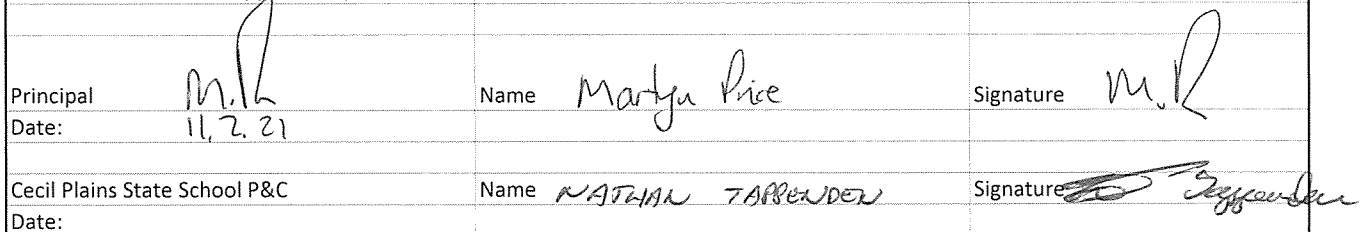 Principal M.P Name Martyn Price Signature M.P
Date: 11.2.21
Cecil Plains State School P&C Name NATHAN TAPPENDEN Signature Tappenden
Date: